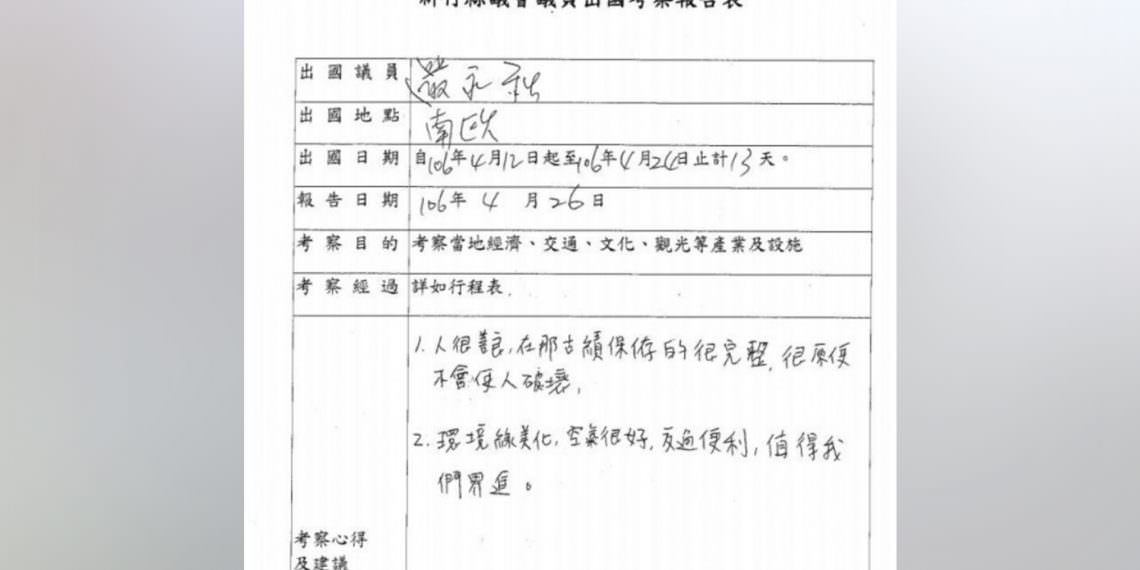 新竹縣議會議員出國考察報告表
出國議員 嚴永秋
出國地點 南欧
出國日期 自106年4月12日起至106年4月24日止計13天。
報告日期 106年4月26日
考察目的 考察當地經濟、交通、文化、觀光等產業及設施
考察經過 詳如行程表.
1. 人很善良,在那古績保存的很完整,很原使
不會使人破壞,
2. 環境綠美化,空氣很好,交通便利,值得我
們界進。
考察心得
及建議